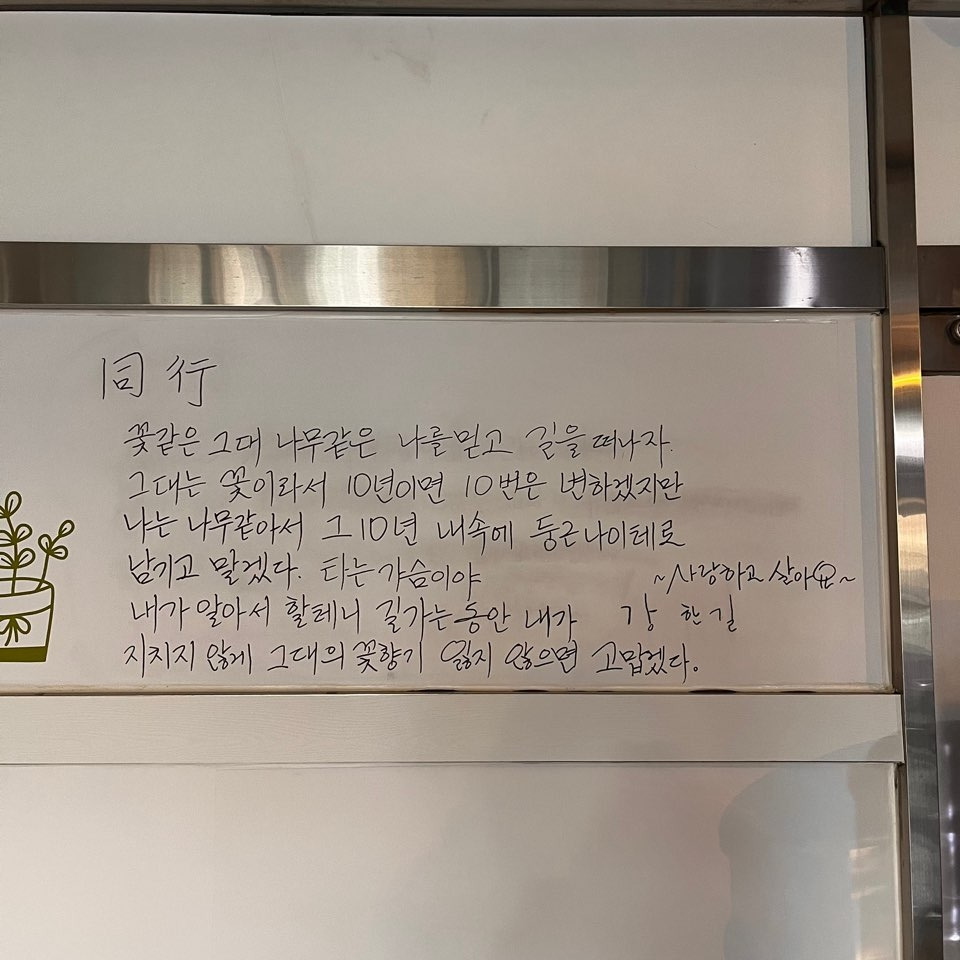 同行
꽃같은 그대 나무같은 나를 믿고 길을 떠나자.
그대는 꽃이라서 10년이면 10번은 변하겠지만
나는 나무같아서 그 10년 내속에 둥근 나이테로
남기고 말겠다. 타는 가슴이야
~사랑하고 살아요~
내가 알아서 할테니 길가는 동안 내가
강 한길
지치지 않게 그대의 꽃향기 잃지 않으면 고맙겠다.